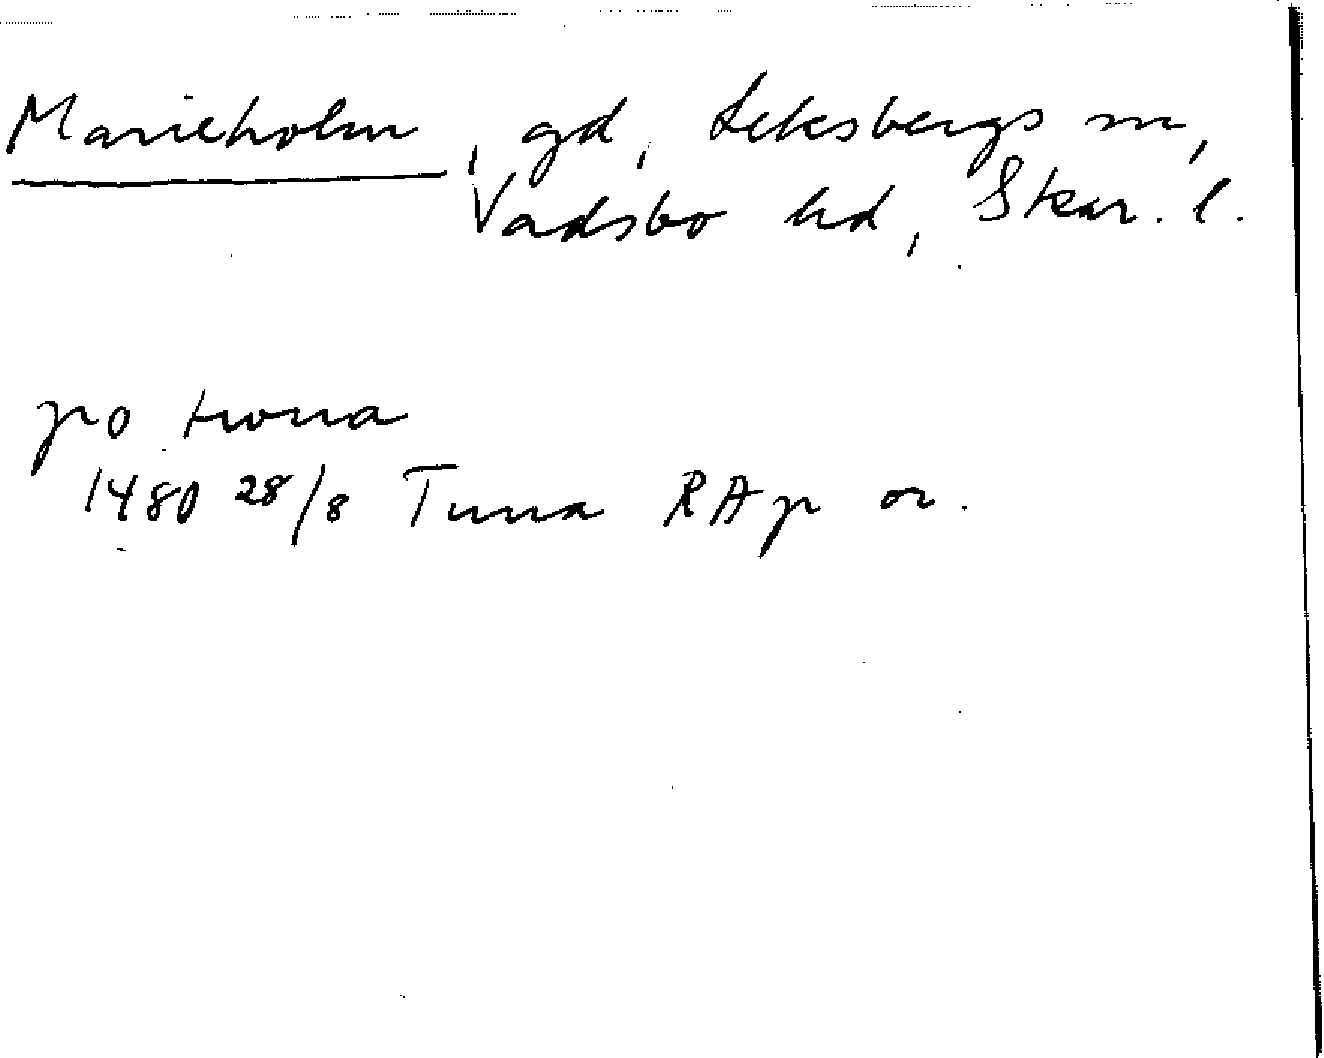 Marieholm, gd, Leksbergs sn,
Vadsbo hd, Skar. l.
po twna
1480 28/8 Tuna RAp or.